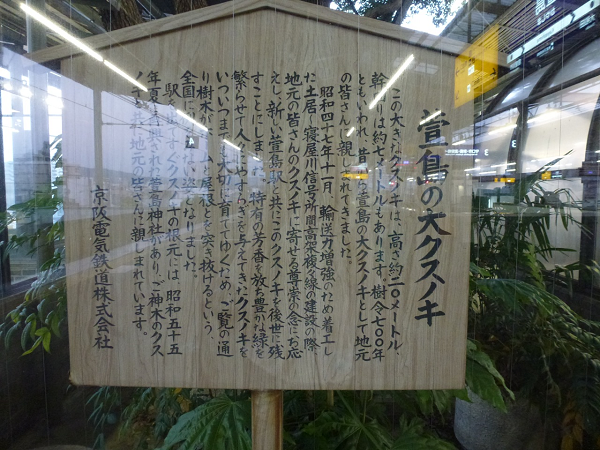 萱島の大クスノキ
この大きなクスノキは、高さ約二〇メートル、
幹周りは約七メートルもあります。樹令七〇〇年
ともいわれ、昔から萱島の大クスノキとして地元
の皆さんに親しまれてきました。
昭和四十七年十一月、輸送力増強のため着工し
た土居〜寝屋川信号所間高架複々線の建設の際、
地元の皆さんのクスノキに寄せる尊崇の念にお応
えし、新しい萱島駅と共にこのクスノキを後世に残
すことにしました。特有の芳香を放ち豊かな緑を
繁らせて人々にやすらぎを与えてきたクスノキを
いついつまでも大切に育ててゆくため、ご覧の通
り樹木がホームと屋根とを突き抜けるという
全国にも
ない姿となりました。
駅を出てすぐクスノキの根元には、昭和五十五
年夏
された萱島神社があり、ご神木のクス
ノキと共に地元の皆さんに親しまれています。
京阪電気鉄道株式会社